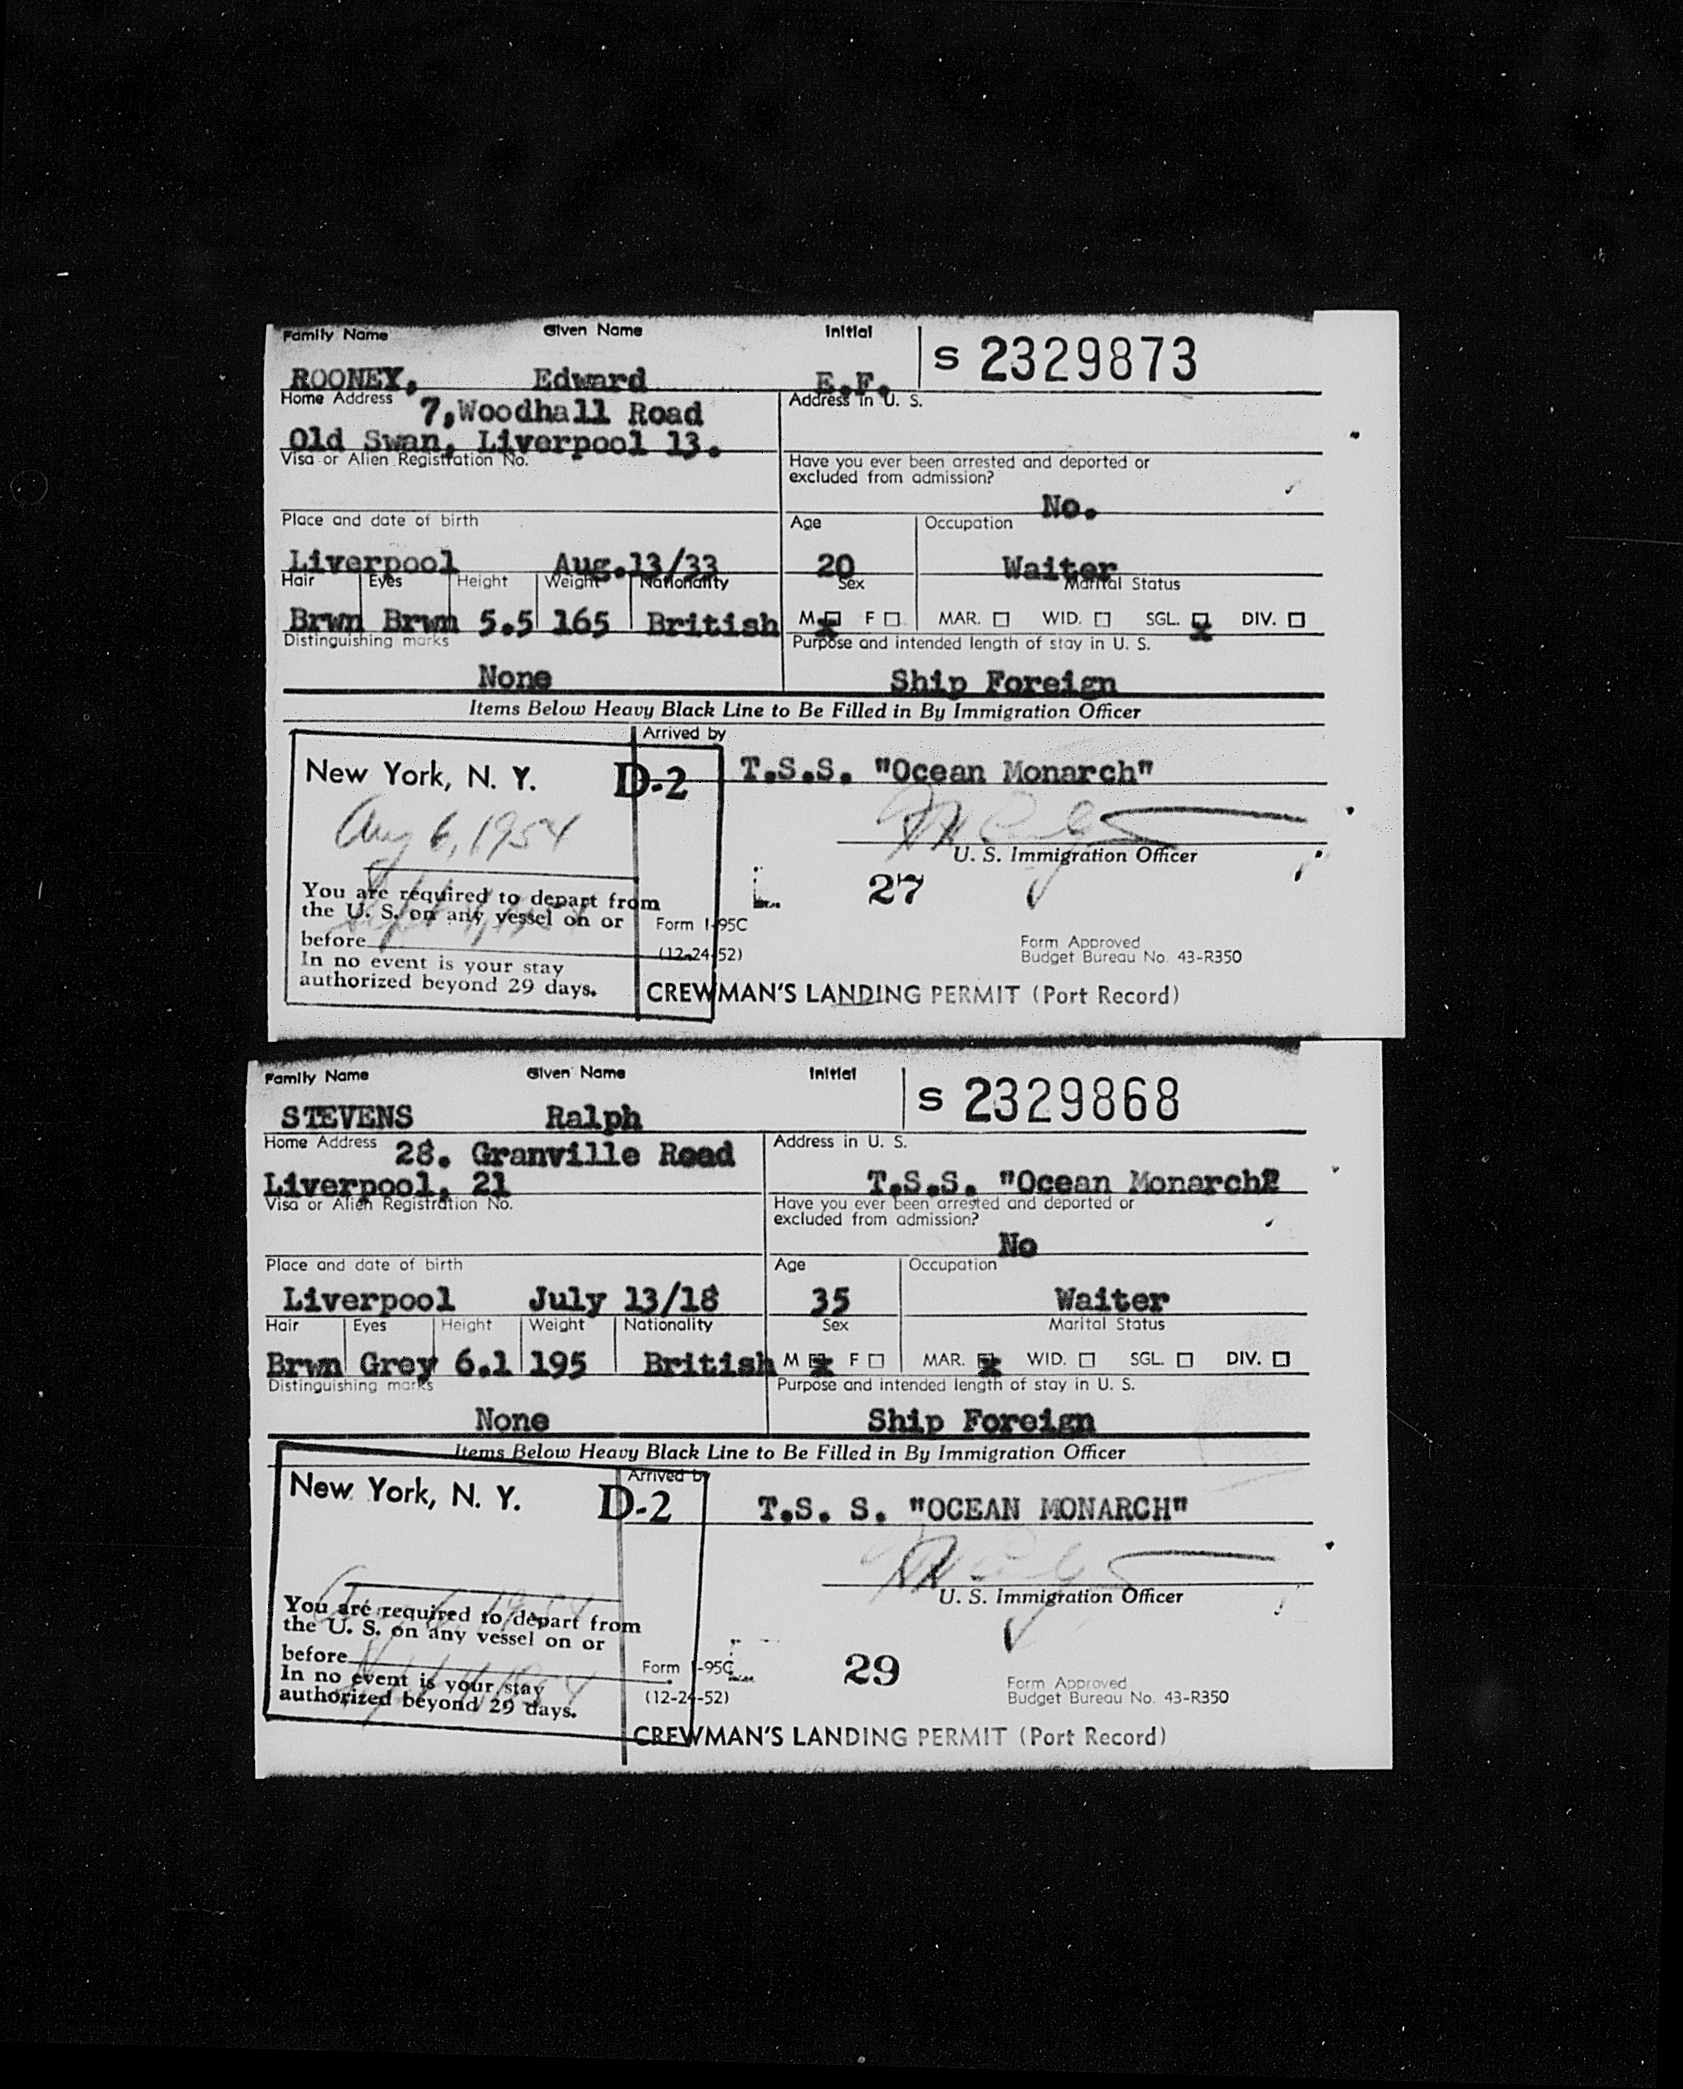 Family Name Given Name Initial S 2329873
ROONEY, Edward E.F.
Home Address 7,Woodhall Road Address in U. S.
Old Swan, Liverpool 13.
Visa or Alien Registration No. Have you ever been arrested and deported or
excluded from admission?
No.
Place and date of birth Age Occupation
Liverpool Aug.13/33 20 Waiter
Hair Eyes Height Weight Nationality Sex Marital Status
Brwn Brwn 5.5 165 British M x F MAR. WID. SGL. x DIV.
Distinguishing marks Purpose and intended length of stay in U. S.
None Ship Foreign
Items Below Heavy Black Line to Be Filled in By Immigration Officer
Arrived by
New York, N. Y. D-2 T.S.S. "Ocean Monarch"
Aug 6, 1954
U. S. Immigration Officer
You are required to depart from 27
the U. S. on any vessel on or Form I-95C
before Form Approved
In no event is your stay (12-24-52) Budget Bureau No. 43-R350
authorized beyond 29 days. CREWMAN'S LANDING PERMIT (Port Record)
Family Name Given Name Initial S 2329868
STEVENS Ralph
Home Address 28. Granville Road Address in U. S.
Liverpool, 21 T.S.S. "Ocean Monarch"
Visa or Alien Registration No. Have you ever been arrested and deported or
excluded from admission?
No
Place and date of birth Age Occupation
Liverpool July 13/18 35 Waiter
Hair Eyes Height Weight Nationality Sex Marital Status
Brwn Grey 6.1 195 British M x F MAR. x WID. SGL. DIV.
Distinguishing marks Purpose and intended length of stay in U. S.
None Ship Foreign
Items Below Heavy Black Line to Be Filled in By Immigration Officer
Arrived by
New York, N. Y. D-2 T.S. S. "OCEAN MONARCH"
U. S. Immigration Officer
You are required to depart from
the U. S. on any vessel on or
before Form I-95C 29
In no event is your stay (12-24-52) Form Approved
authorized beyond 29 days. Budget Bureau No. 43-R350
CREWMAN'S LANDING PERMIT (Port Record)